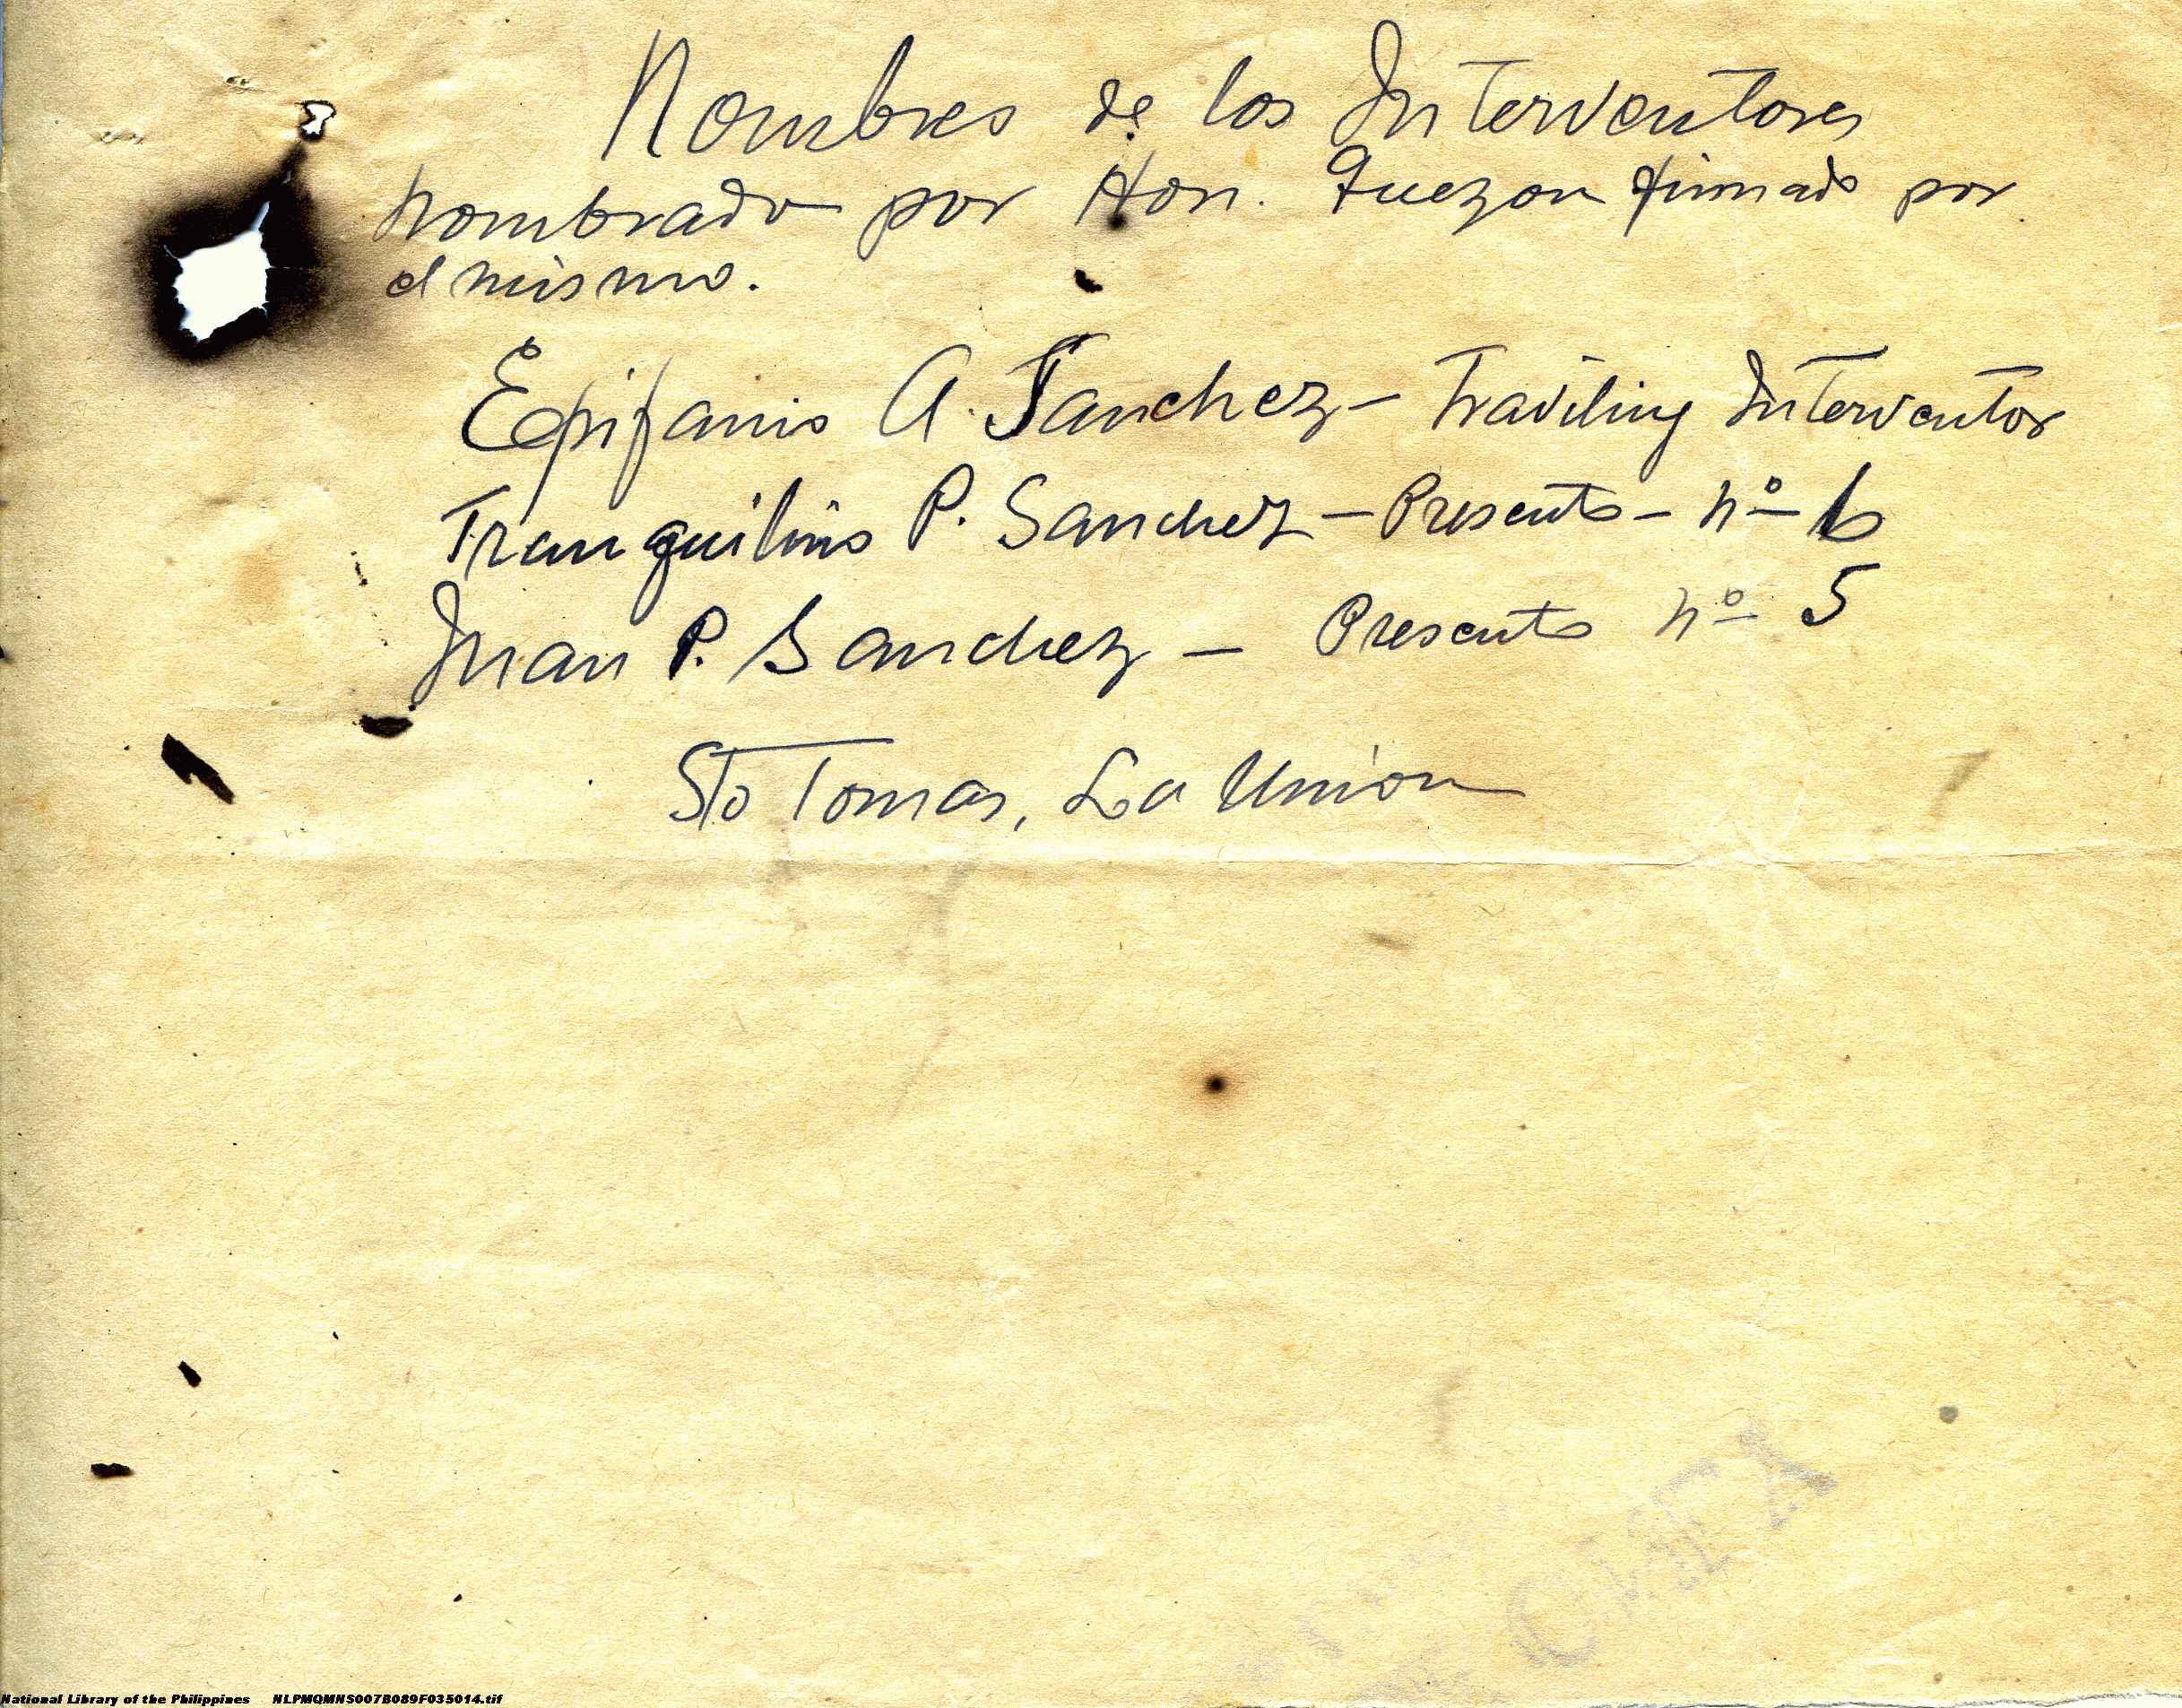 Nombres de los Interventores
nombrado por Hon. Quezon firmado por
el mismo.
Epifanio A. Sanchez - Traviling Interventor
Tranquilino P. Sanchez - Presento - nº 6
Juan P. Sanchez - Presento nº 5
Sto Tomas, La Union
National Library of the Philippines NLPMQMNS007B089F035014.tif